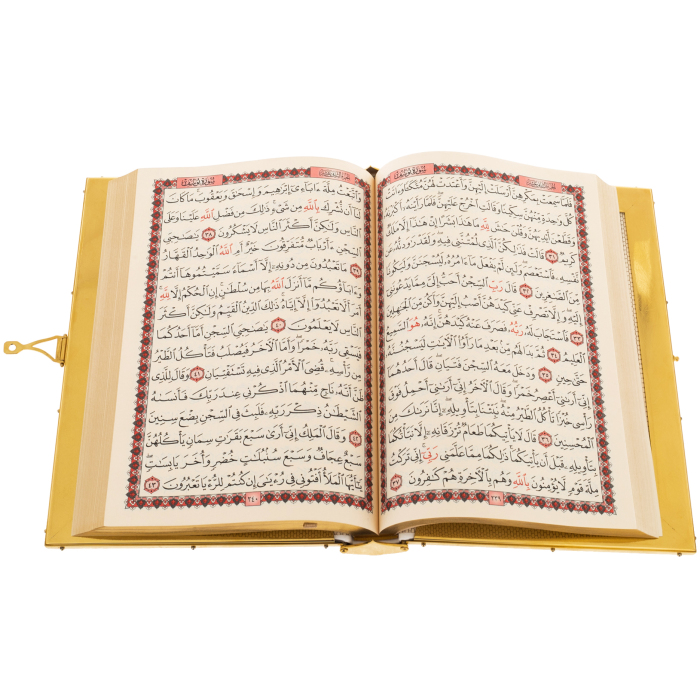 سُورَةُ يُوسُفَ
فَلَمَّا سَمِعَتْ بِمَكْرِهِنَّ أَرْسَلَتْ إِلَيْهِنَّ وَأَعْتَدَتْ لَهُنَّ مُتَّكَـًٔا وَءَاتَتْ
كُلَّ وَٰحِدَةٍ مِّنْهُنَّ سِكِّينًا وَقَالَتِ ٱخْرُجْ عَلَيْهِنَّ فَلَمَّا رَأَيْنَهُۥٓ أَكْبَرْنَهُۥ
وَقَطَّعْنَ أَيْدِيَهُنَّ وَقُلْنَ حَٰشَ لِلَّهِ مَا هَٰذَا بَشَرًا إِنْ هَٰذَآ إِلَّا مَلَكٌ
كَرِيمٌ ٣١ قَالَتْ فَذَٰلِكُنَّ ٱلَّذِى لُمْتُنَّنِى فِيهِ وَلَقَدْ رَٰوَدتُّهُۥ عَن
نَّفْسِهِۦ فَٱسْتَعْصَمَ وَلَئِن لَّمْ يَفْعَلْ مَآ ءَامُرُهُۥ لَيُسْجَنَنَّ وَلَيَكُونًا
مِّنَ ٱلصَّٰغِرِينَ ٣٢ قَالَ رَبِّ ٱلسِّجْنُ أَحَبُّ إِلَىَّ مِمَّا يَدْعُونَنِىٓ
إِلَيْهِ وَإِلَّا تَصْرِفْ عَنِّى كَيْدَهُنَّ أَصْبُ إِلَيْهِنَّ وَأَكُن مِّنَ ٱلْجَٰهِلِينَ
٣٣ فَٱسْتَجَابَ لَهُۥ رَبُّهُۥ فَصَرَفَ عَنْهُ كَيْدَهُنَّ إِنَّهُۥ هُوَ ٱلسَّمِيعُ
ٱلْعَلِيمُ ٣٤ ثُمَّ بَدَا لَهُم مِّنۢ بَعْدِ مَا رَأَوُا۟ ٱلْـَٔايَٰتِ لَيَسْجُنُنَّهُۥ
حَتَّىٰ حِينٍ ٣٥ وَدَخَلَ مَعَهُ ٱلسِّجْنَ فَتَيَانِ قَالَ أَحَدُهُمَآ
إِنِّىٓ أَرَىٰنِىٓ أَعْصِرُ خَمْرًا وَقَالَ ٱلْـَٔاخَرُ إِنِّىٓ أَرَىٰنِىٓ أَحْمِلُ فَوْقَ
رَأْسِى خُبْزًا تَأْكُلُ ٱلطَّيْرُ مِنْهُ نَبِّئْنَا بِتَأْوِيلِهِۦٓ إِنَّا نَرَىٰكَ مِنَ
ٱلْمُحْسِنِينَ ٣٦ قَالَ لَا يَأْتِيكُمَا طَعَامٌ تُرْزَقَانِهِۦٓ إِلَّا نَبَّأْتُكُمَا
بِتَأْوِيلِهِۦ قَبْلَ أَن يَأْتِيَكُمَا ذَٰلِكُمَا مِمَّا عَلَّمَنِى رَبِّىٓ إِنِّى تَرَكْتُ
مِلَّةَ قَوْمٍ لَّا يُؤْمِنُونَ بِٱللَّهِ وَهُم بِٱلْـَٔاخِرَةِ هُمْ كَٰفِرُونَ ٣٧
٢٣٩
سُورَةُ يُوسُفَ
وَٱتَّبَعْتُ مِلَّةَ ءَابَآءِىٓ إِبْرَٰهِيمَ وَإِسْحَٰقَ وَيَعْقُوبَ مَا كَانَ
لَنَآ أَن نُّشْرِكَ بِٱللَّهِ مِن شَىْءٍ ذَٰلِكَ مِن فَضْلِ ٱللَّهِ عَلَيْنَا وَعَلَى
ٱلنَّاسِ وَلَٰكِنَّ أَكْثَرَ ٱلنَّاسِ لَا يَشْكُرُونَ ٣٨ يَٰصَىٰحِبَىِ
ٱلسِّجْنِ ءَأَرْبَابٌ مُّتَفَرِّقُونَ خَيْرٌ أَمِ ٱللَّهُ ٱلْوَٰحِدُ ٱلْقَهَّارُ
٣٩ مَا تَعْبُدُونَ مِن دُونِهِۦٓ إِلَّآ أَسْمَآءً سَمَّيْتُمُوهَآ أَنتُمْ
وَءَابَآؤُكُم مَّآ أَنزَلَ ٱللَّهُ بِهَا مِن سُلْطَٰنٍ إِنِ ٱلْحُكْمُ إِلَّا لِلَّهِ
أَمَرَ أَلَّا تَعْبُدُوٓا۟ إِلَّآ إِيَّاهُ ذَٰلِكَ ٱلدِّينُ ٱلْقَيِّمُ وَلَٰكِنَّ أَكْثَرَ
ٱلنَّاسِ لَا يَعْلَمُونَ ٤٠ يَٰصَىٰحِبَىِ ٱلسِّجْنِ أَمَّآ أَحَدُكُمَا
فَيَسْقِى رَبَّهُۥ خَمْرًا وَأَمَّا ٱلْـَٔاخَرُ فَيُصْلَبُ فَتَأْكُلُ ٱلطَّيْرُ
مِن رَّأْسِهِۦ قُضِىَ ٱلْأَمْرُ ٱلَّذِى فِيهِ تَسْتَفْتِيَانِ ٤١ وَقَالَ لِلَّذِى
ظَنَّ أَنَّهُۥ نَاجٍ مِّنْهُمَا ٱذْكُرْنِى عِندَ رَبِّكَ فَأَنسَىٰهُ
ٱلشَّيْطَٰنُ ذِكْرَ رَبِّهِۦ فَلَبِثَ فِى ٱلسِّجْنِ بِضْعَ سِنِينَ
٤٢ وَقَالَ ٱلْمَلِكُ إِنِّىٓ أَرَىٰ سَبْعَ بَقَرَٰتٍ سِمَانٍ يَأْكُلُهُنَّ
سَبْعٌ عِجَافٌ وَسَبْعَ سُنۢبُلَٰتٍ خُضْرٍ وَأُخَرَ يَابِسَٰتٍ
يَٰٓأَيُّهَا ٱلْمَلَأُ أَفْتُونِى فِى رُءْيَٰىَ إِن كُنتُمْ لِلرُّءْيَا تَعْبُرُونَ ٤٣
٢٤٠